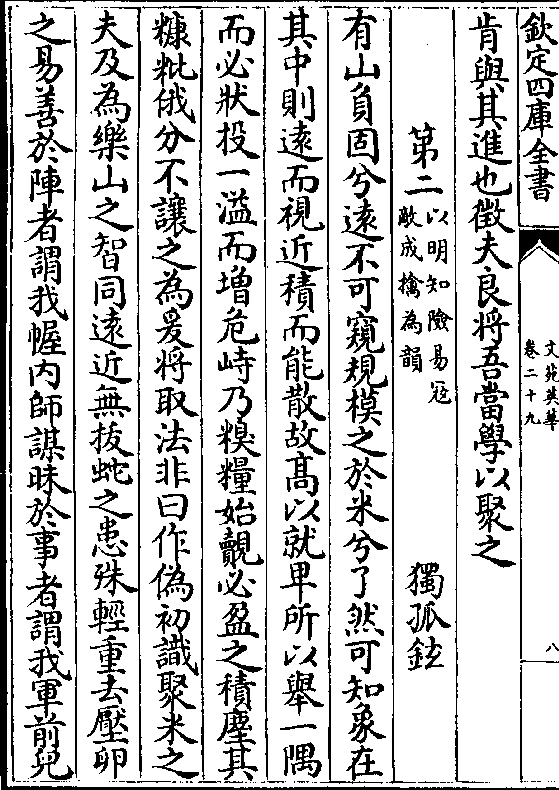 欽定四庫全書
文苑英華
卷二十九
八
肯與其進也徴夫良将吾當學以聚之
第二
以明知險易冦
敵成擒為韻
獨孤鉉
有山負固兮遠不可窺規模之於米兮了然可知象在
其中則遠而視近積而能散故髙以就卑所以舉一隅
而必狀投一溢而増危峙乃糗糧始覿必盈之積塵其
糠粃俄分不讓之為爰将取法非曰作偽初識聚米之
夫及為樂山之智同遠近無拔蛇之患殊輕重去壓卵
之易善於陣者謂我幄内師謀昧於事者謂我軍前兒